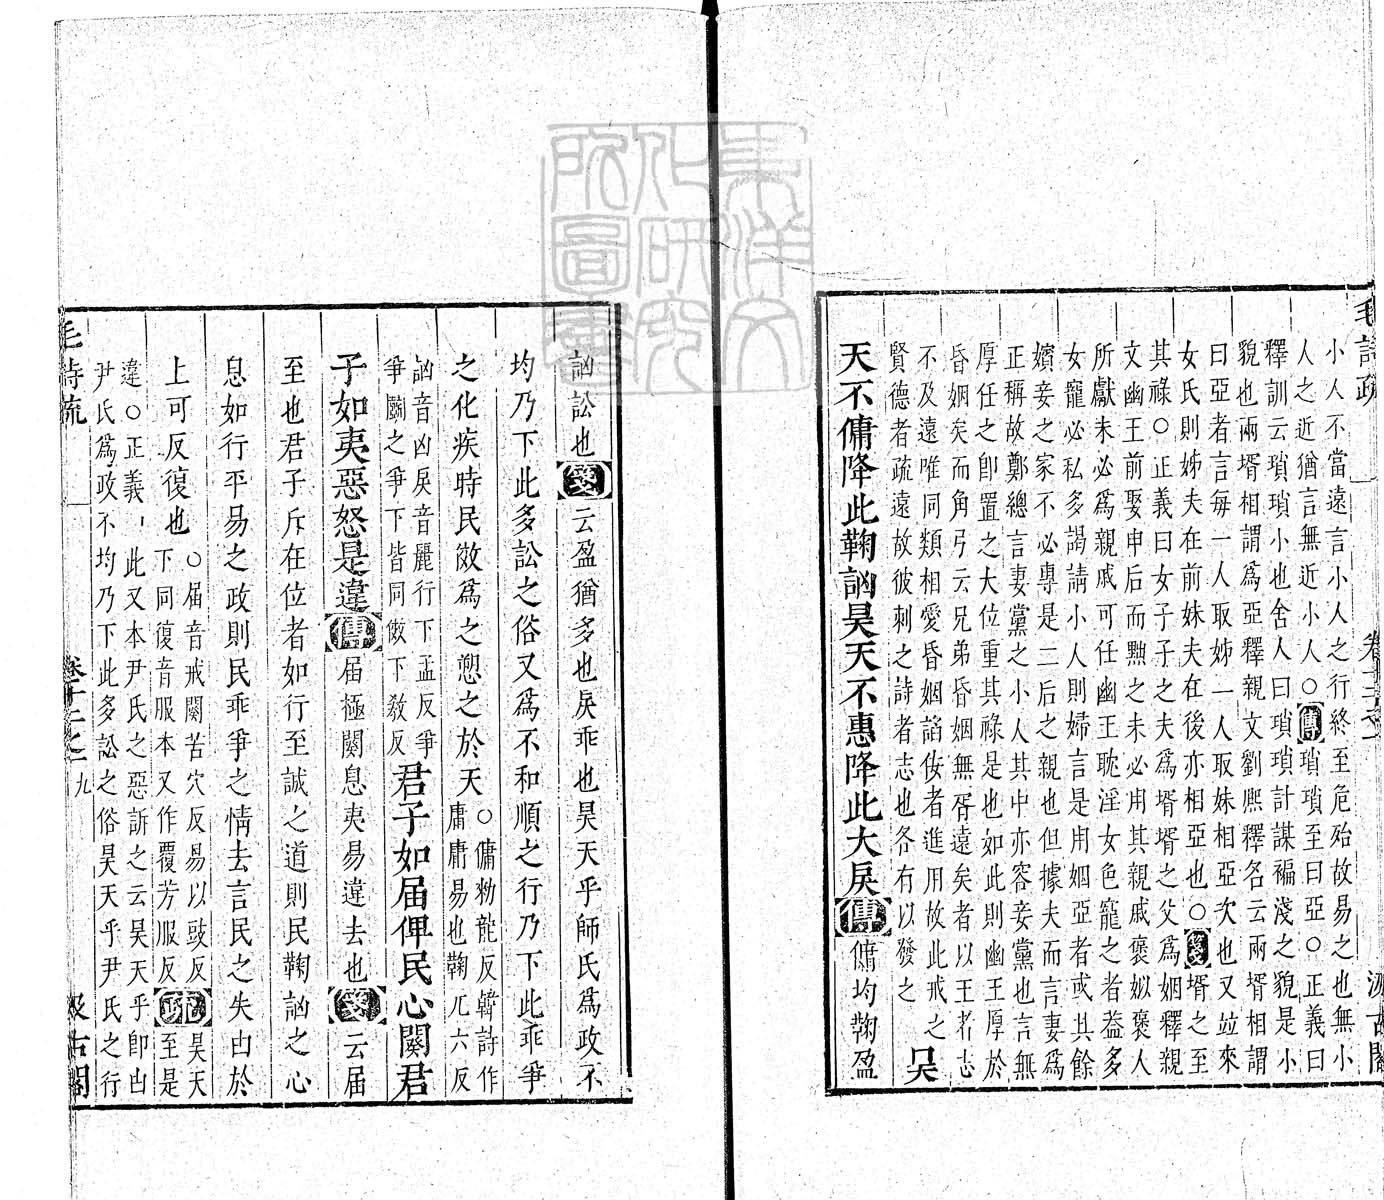 毛詩疏
卷十二之一
汲古閣
小人不當遠言小人之行終至危殆故易之也無小
人之近猶言無近小人○傳瑣瑣至曰亞○正義曰
釋訓云瑣瑣小也舍人曰瑣瑣計謀褊淺之貌是小
貌也兩壻相謂爲亞釋親文劉熈釋名云兩壻相謂
曰亞者言毎一人取姊一人取妹相亞次也又竝來
女氏則姊夫在前妹夫在後亦相亞也○箋壻之至
其祿○正義曰女子子之夫爲壻壻之父爲姻釋親
文幽王前娶申后而黜之未必用其親戚褒姒褒人
所獻未必爲親戚可任幽王耽淫女色寵之者益多
女寵必私多謁請小人則婦言是用姻亞者或其餘
嬪妾之家不必專是二后之親也但據夫而言妻爲
正稱故鄭總言妻黨之小人其中亦容妾黨也言無
厚任之卽置之大位重其祿是也如此則幽王厚於
昏姻矣而角弓云兄弟昏姻無胥遠矣者以王者志
不及遠唯同類相愛昏姻諂佞者進用故此戒之
賢德者疏遠故彼刺之詩者志也各有以發之
昊
天不傭降此鞫訩昊天不惠降此大戾傳傭均鞫盈
訩訟也箋云盈猶多也戾乖也昊天乎師氏爲政不
均乃下此多訟之俗又爲不和順之行乃下此乖爭
之化疾時民傚爲之愬之於天○傭勑龍反韓詩作
庸庸易也鞫九六反
訩音凶戾音麗行下孟反爭
爭鬬之爭下皆同傚下敎反
君子如届俾民心闋君
子如夷惡怒是違傳届極闋息夷易違去也箋云届
至也君子斥在位者如行至誠之道則民鞫訩之心
息如行平易之政則民乖爭之情去言民之失由於
上可反復也○届音戒闋苦穴反易以豉反
下同復音服本又作覆芳服反
疏昊天
至是
違○正義曰此又本尹氏之惡訴之云昊天乎卽由
尹氏爲政不均乃下此多訟之俗昊天乎尹氏之行
毛詩疏
卷十二之一
九
汲古閣
東洋文化研究所圖書